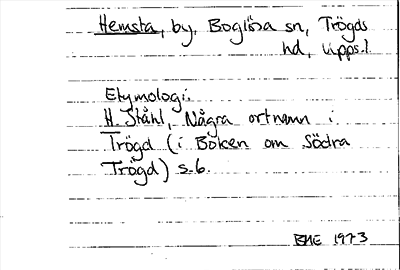 Hemsta, by, Boglösa sn, Trögds
hd, Upps.l.
Etymologi:
H. Ståhl, Några ortnamn i
Trögd (i Boken om Södra
Trögd) s.6.
BHE 1973